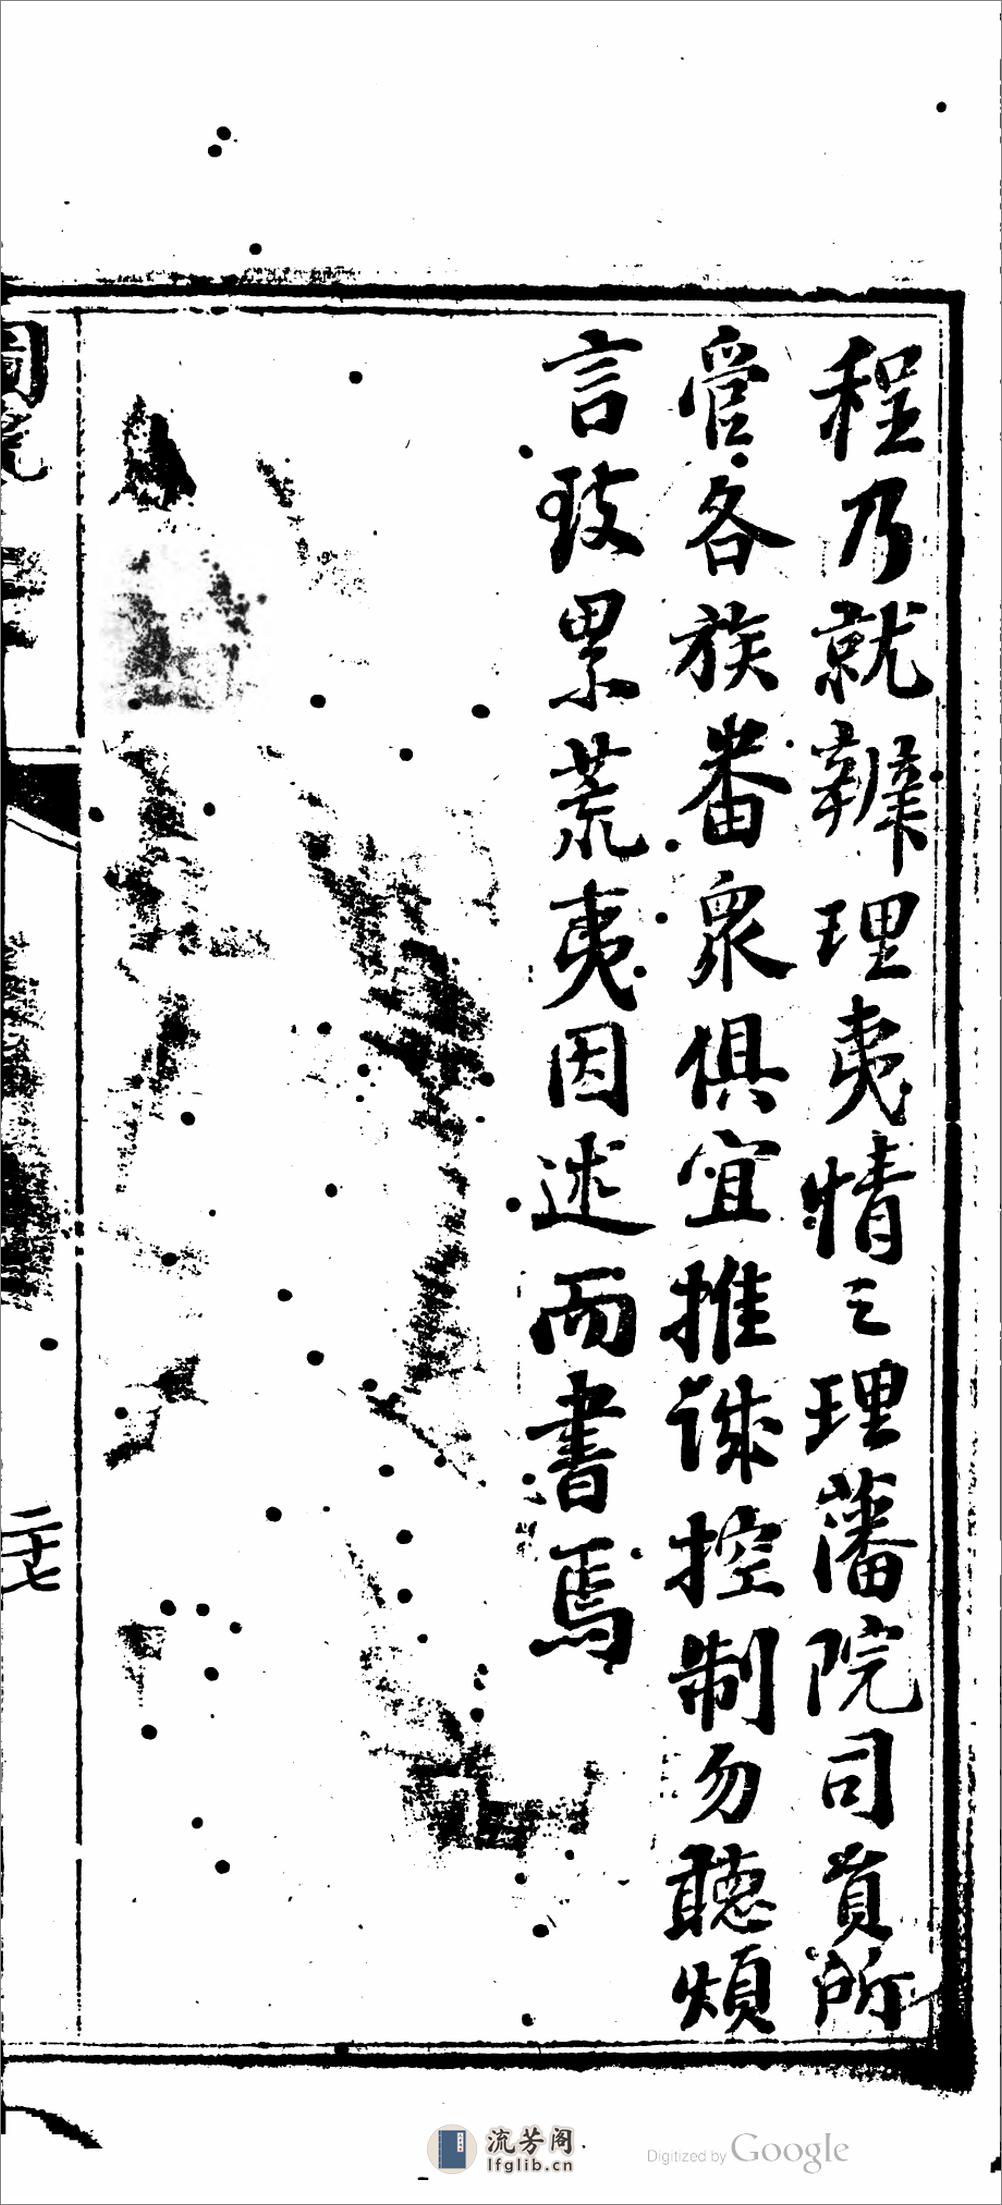 程乃就辦理夷情之理藩院司員所
管各族番眾俱宜推誠控制勿聽煩
言致累荒夷因述而書焉
二十七
流芳阁
lfglib.cn
Digitized by Google